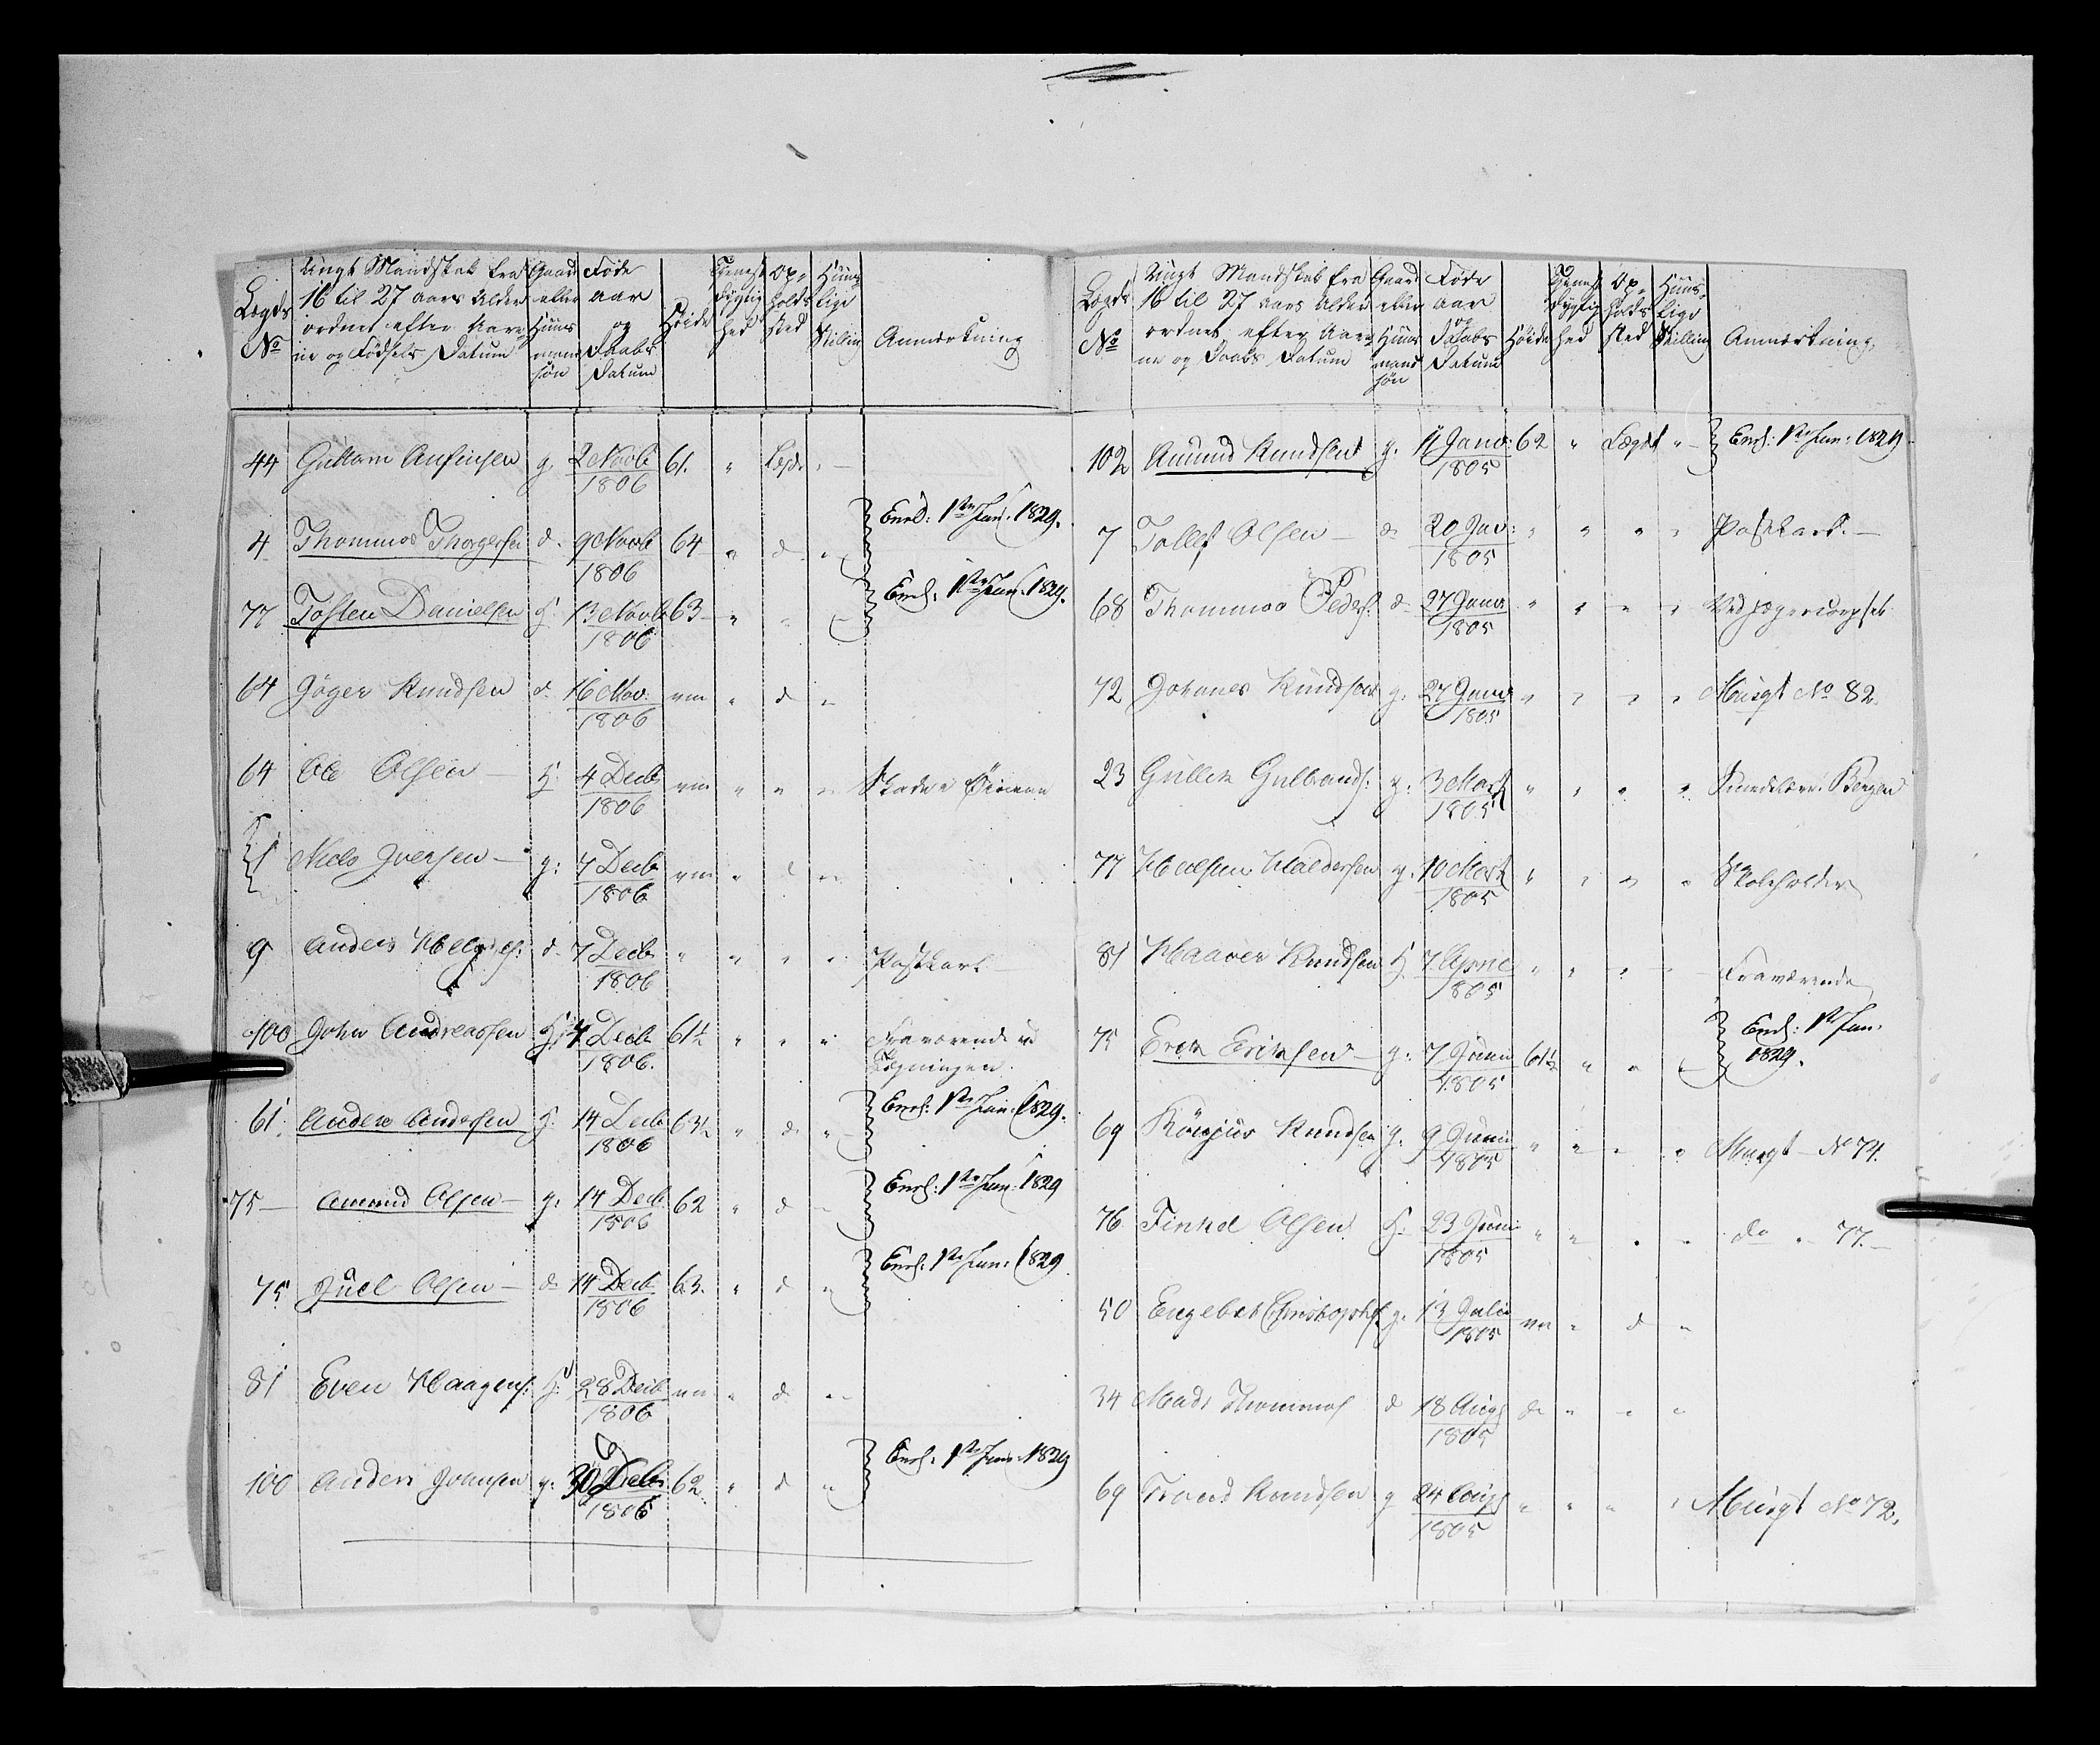 Lægds No | Ungt Mandskab fra 16 til 27 aars Alder ordnet efter Aarene og Fødsels Datum | Gaard eller Huusmand søn | Føde aar og Daabs Datum | Höide | Tieneste Dygtighed | Opholdssted | Huuslige Stilling | Anmærkning
44 Guttorm Anfinsen g. 2 Novb 1806 61. " Lægd. "
4 Thommas Thorgersen d. 9 Novb 1806 64 " d "  Enrl: 1ste Jan: 1829.
77 Tosten Danielsen H. 13 Novb 1806 63 " " " Enrl: 1ste Jan: 1829.
64 Jöger Knudsen d. 16 Nov. 1806 um " d "
64 Ole Olsen H. 4 Decb 1806 um " " " Skade i Öinene
1 Niels Iversen g: 7 Decb 1806 um " d "
9 Anders Helgess: d. 7 Decb 1806 " " " " Postkarl
100 John Andreassen H. 7 Decb 1806. 61½ " " " Fraværende ved
Lægningen.
61 Anders Andersen H. 14 Decb 1806 63½ " d. " Enrl: 1ste Jan: 1829.
75 Amund Olsen g. 14 Decb 1806 62 " d " Enrl: 1ste Jan: 1829
75 Juel Olsen d. 14 Decb 1806 63. " d " Enrl: 1ste Jan: 1829
81 Even Haagens: H. 28 Decb 1806 um " d "
100 Anders Johnsen g. 30 Decb 1806 62. " d " Enrl: 1ste Jan: 1829
Lægds No | Ungt Mandskab fra 16 til 27 aars Alder ordnet efter Aarene og Daabs Datum | Gaard eller Huusmand søn | Føde aar og Daabs Datum | Höide | Tieneste Dygtighed | Opholdssted | Huuslige Stilling | Anmærkning.
102 Amund Knudsen g. 1 Janv: 1805 62 " Lægdet " Enrl: 1ste Jan: 1829
7 Tollef Olsen d. 20 Jav: 1805 " " " " Postkarl.
68 Thommas Peders: d. 27 Janv 1805 " " " " Ved Jægercorpset
72 Johanes Knudsen g. 27 Janv 1805 " " " " Muugt No 82.
23 Gullik Gulbrands: g. 3 Mart 1805 " " " " Bergen
77 Halsten Haldorsen g. 10 Mart 1805 " " " " Skoleholder
81 Haaver Knudsen H. 7 April 1805 " " " " Fraværende
75 Erik Eriksen g. 7 Juni 1805 61½ " " " Enrl: 1ste Jan.
1829.
69 Knudsen g. 9 Juni 1805 " " " " Muugt No 74.
76 Finkel Olsen H. 23 Juni 1805 " " " " do " 77.
50 Engebret Christophs g. 13 Julii 1805 um " d "
34 Mads Thommas d 18 Aug 1805 do " " "
69 Trond Knudsen g 24 Aug 1805 " " " " Muugt No 72.